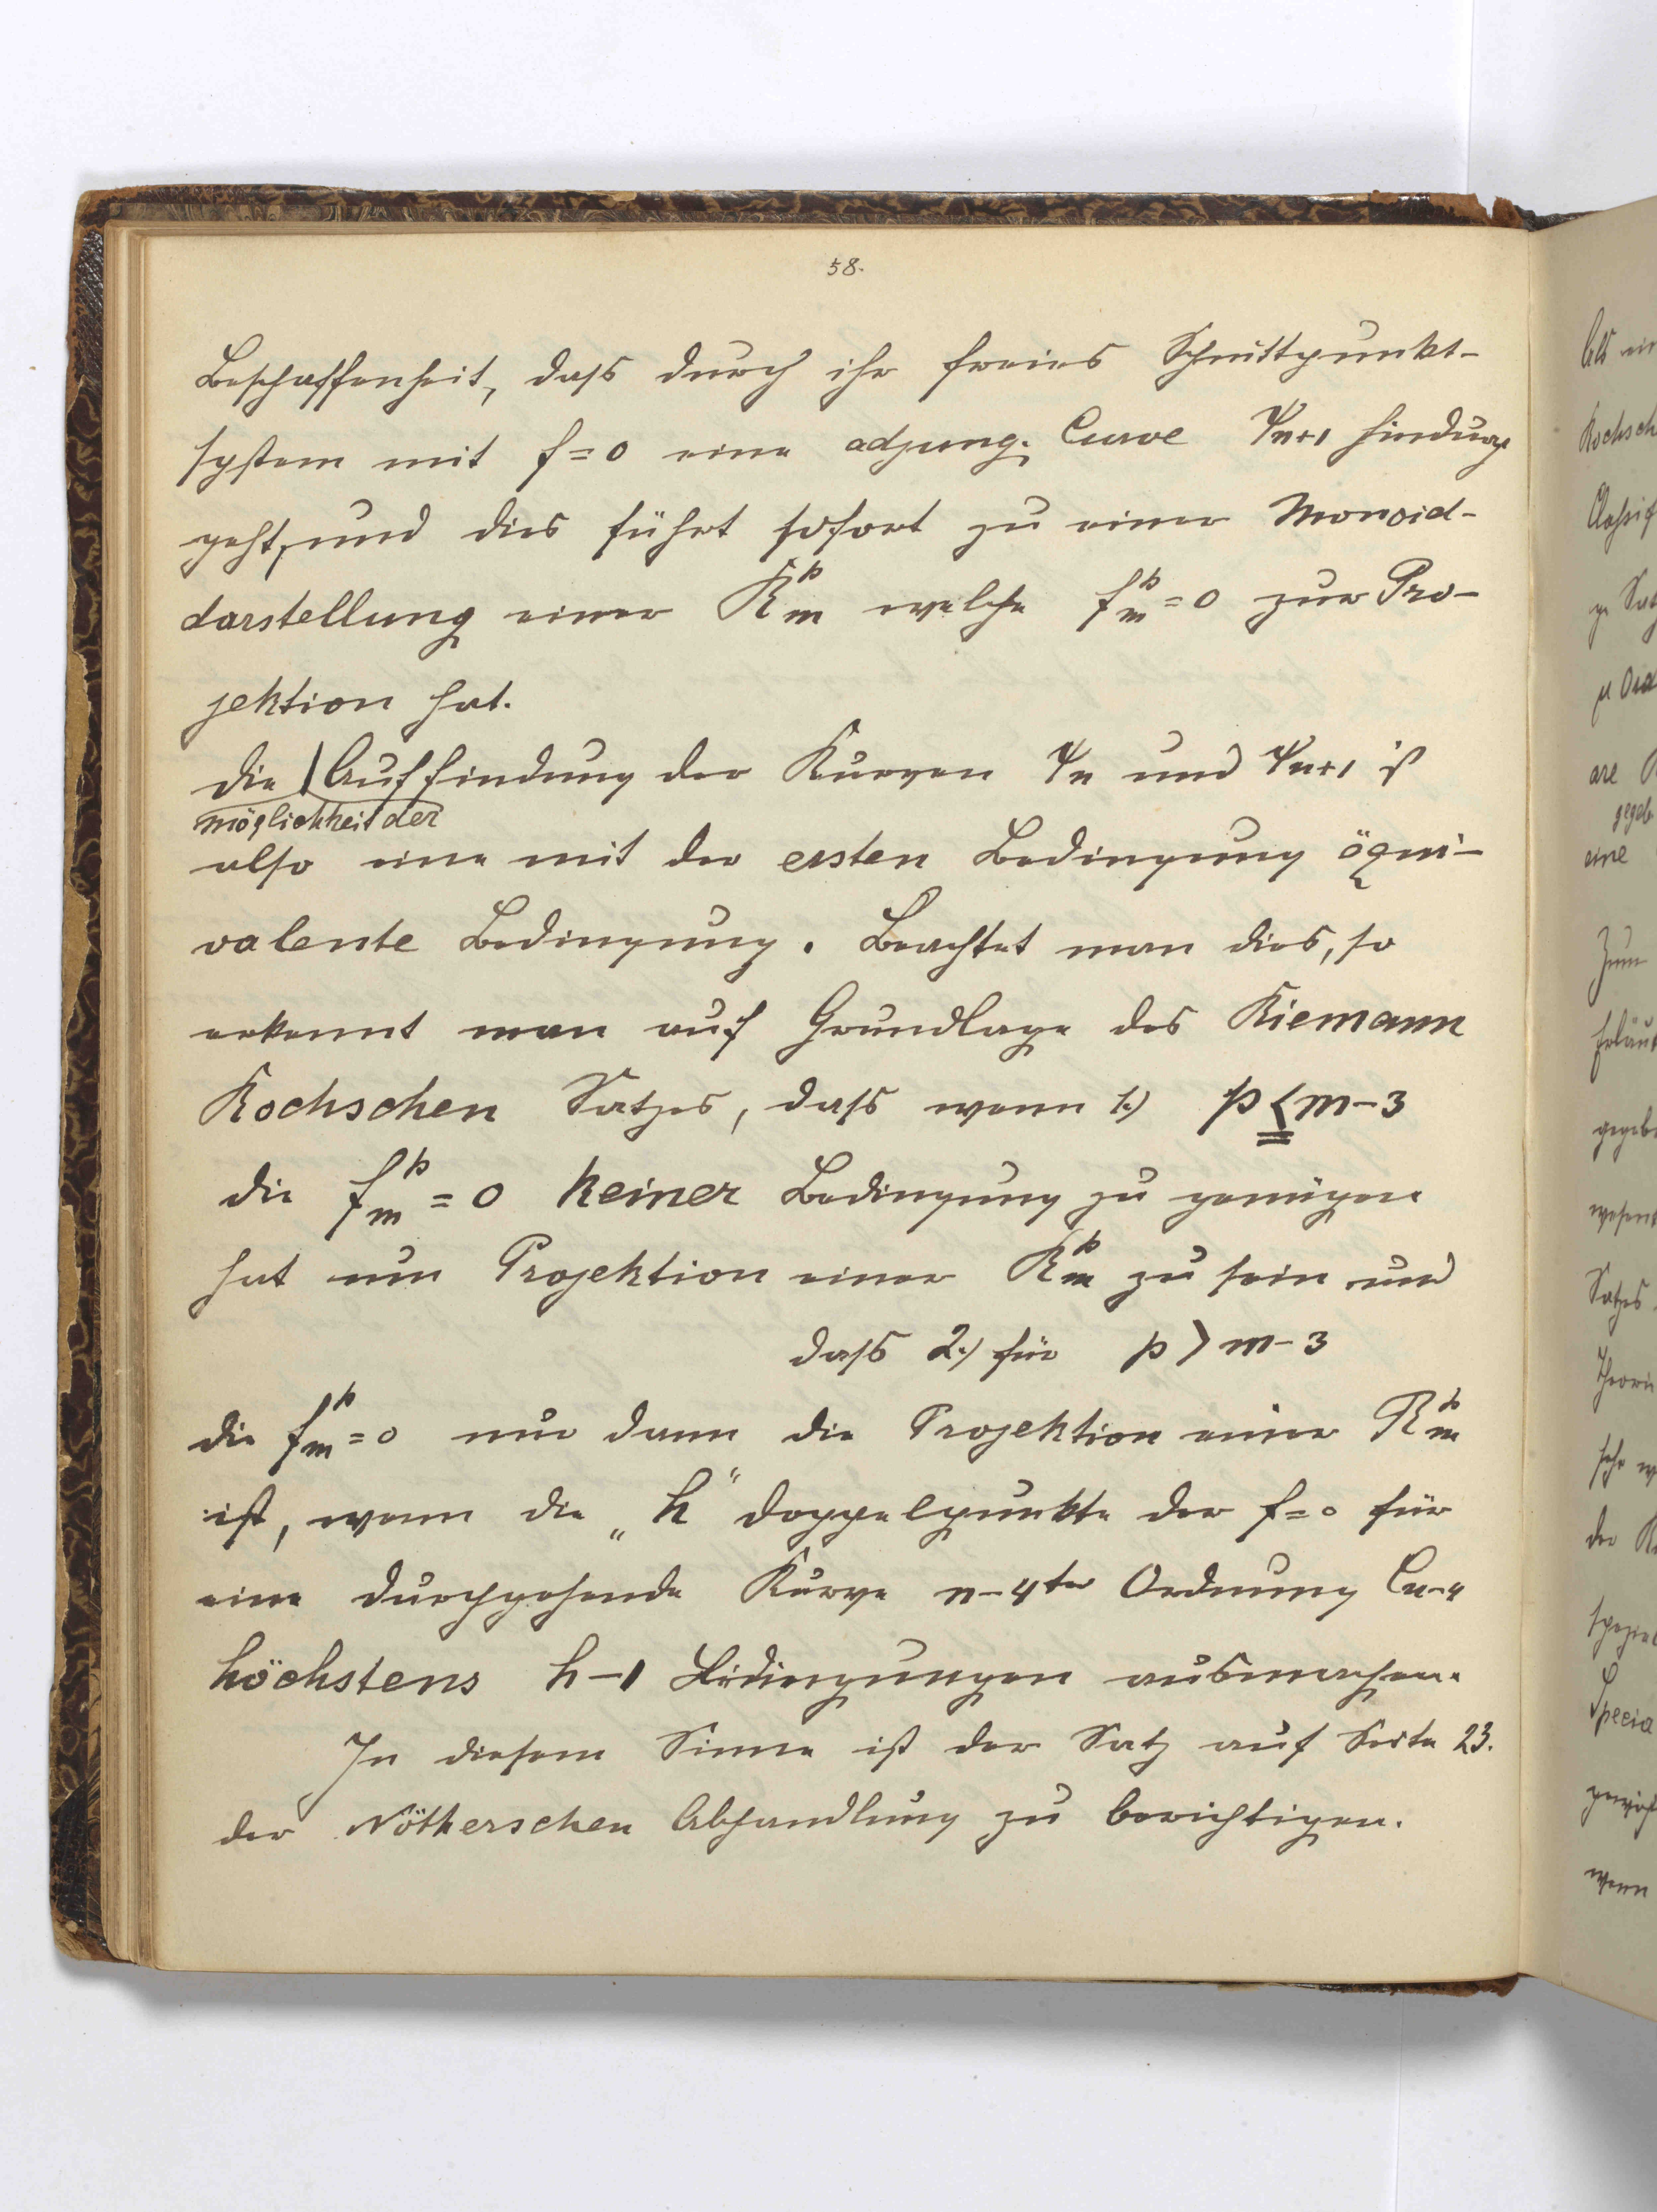 58.
Beschaffenheit, dass durch ihr freies Schnittpunkt-
system mit f=0 eine adjung. Curve ψn+1 hindurch
geht, und dies führt sofort zu einer Monoid-
darstellung einer R^p_m welche f^p_m=0 zur Pro-
jektion hat.
Die | Auffindung der Kurven ψn und ψn+1 ist
möglichkeit der
also eine mit der ersten Bedingung äqui-
valente Bedingung. Beachtet man dies, so
erkennt man auf Grundlage des Riemann
Rochschen Satzes, dass wenn 1.) p ≦ m-3
die f^p_m = 0 keiner Bedingung zu genügen
hat um Projektion einer R^p_m zu sein und
dass 2.) für p > m-3
die f^p_m=0 nur dann die Projektion einer R^p_m
ist, wenn die „h“ Doppelpunkte der f=0 für
eine durchgehende Kurve n-4ter Ordnung Cn-4
höchstens h-1 Bedingungen ausmachen.
In diesem Sinne ist der Satz auf Seite 23.
der Nötherschen Abhandlung zu berichtigen.
Als ein
Rochsch
Classif
ge Satz
are
gegeb.
eine
Zum
Erläut
gegeb
wesent
Satzes
Theorie
sehr w
der K
spezial
Specia
wenn